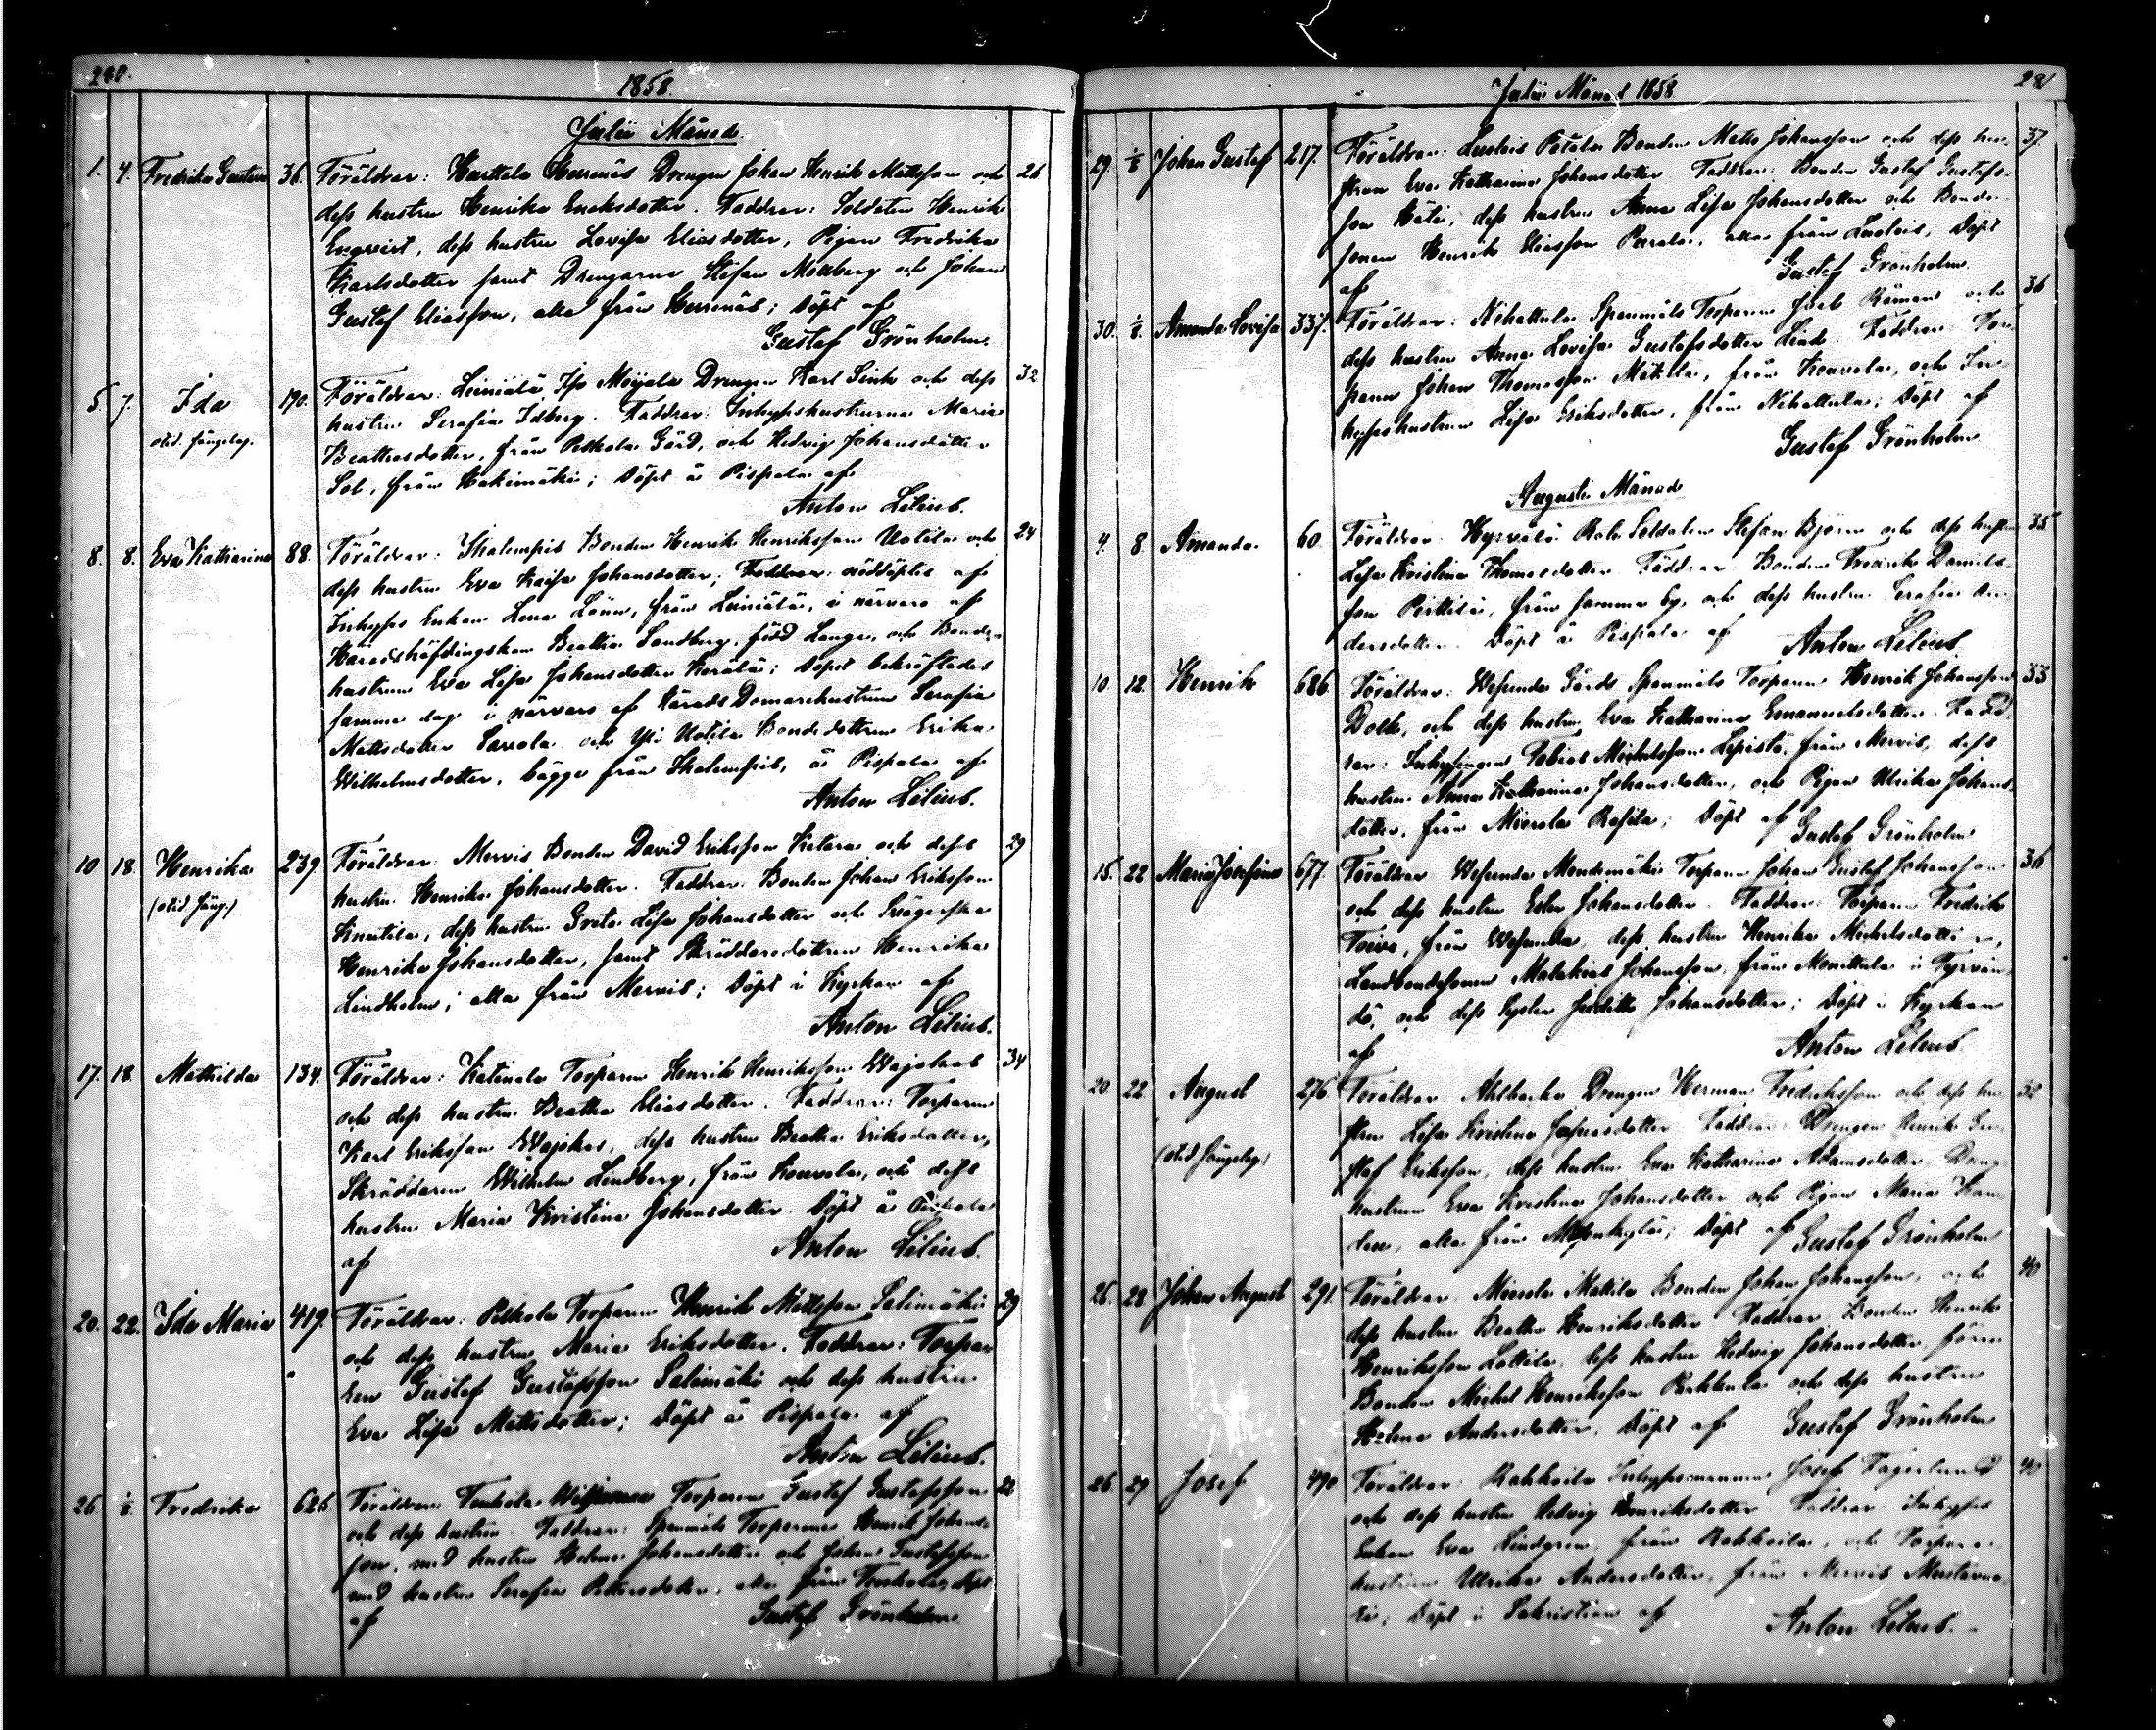 280.
1858.
Julii Månad.
1. 4. Fredrika Gustava 36. Föräldrar: Hurttala Drengen Johan Henrik Mattsson och 26
dess hustru Henrika Eneksdotter. Faddrar: Soldaten Henrik
Engvist, dess hustru Lovisa Eliasdotter, Pigan Fredrika
Karlsdotter samt Drengarne Stefan Moberg och Johan
Gustaf Eliasson, alla från; Döpt af
Gustaf Grönholm.
5. 7. Ida 190. Föräldrar: Leiniälä Iso Moijala Drengen Karl Sink och dess 32
oäd. fängelsg. hustru Serafia Idberg. Faddrar: Inhyseshustrurna Maria
Beattasdotter, från Pelkola Gård, och Hedvig Johansdotter
Sol, från Hakimäki; Döpt å Pispala af
Anton Lilius.
8. 8. Eva Katharina 88. Föräldrar: Skalempis Bonden Henrik Henriksson Uotila och 24
dess hustru Eva Kaisa Johansdotter; nöddöptes af
Inhyses Enkan Lena Lönn, från Leiniälä, i närvaro af
Häradshöfdingskan Beatha Sandberg, född Lange, och Bonde-
hustrun Eva Lisa Johansdotter Kerälä; Döpet bekräftades
samma dag i närvaro af Härads Domarehustrun Serafia
Mattsdotter Savola och Yli Uotila Bondedottren Erika
Wilhelmsdotter, bägge från Skalempis, å Pispala af
Anton Lilius.
10 18. Henrika 239. Föräldrar: Mervis Bonden David Eriksson Katara och dess 29
hustru Henrika Johansdotter. Faddrar: Bonden Johan Eriksson
Knutila, dess hustru Greta Lisa Johansdotter och Svägerskan
Henrika Johansdotter, samt Skräddaredottren Henrika
Lindholm; alla från Mervis; Döpt i Kyrkan af
Anton Lilius.
17. 18. Mathilda 134. Föräldrar: Katinala Torparen Henrik Henriksson 34
och dess hustru Beatha Eliasdotter. Faddrar: Torparen
Karl Eriksson, dess hustru Beatha Eriksdotter,
Skräddaren Wilhelm Lindberg, från Kouvala, och dess
hustru Maria Kristina Johansdotter. Döpt å Pispala
af Anton Lilius.
20. 22. Ida Maria 419. Föräldrar: Pelkola Torparen Henrik Mattsson Salimäki 29
och dess hustru Maria Eriksdotter. Faddrar: Torpar
ren Gustaf Gustafsson Salimäki och dess hustru
Eva Lisa Mattsdotter; Döpt å Pispala af
Anton Lilius.
26. 1/8. Fredrika 626. Föräldrar: Tenhola Torparen Gustaf Gustafsson 22
och dess hustru. Faddrar: Spanmåls Torparena Henrik Johans-
son, med hustru Helena Johansdotter och Johan Gustafsson
med hustru Serafia Pettersdotter, alla från Tenhola; Döpt
af Gustaf Grönholm.
Julii Månad 1858 281
29. 1/8 Johan Gustaf 217. Föräldrar: Lusleis Bonden Matts Johansson och dess hu- 37.
stru Eva Katharina Johansdotter. Faddrar: Bonden Gustaf Gustafs-
son, dess hustru Anna Lisa Johansdotter och Bonde-
sonen Henrik Eliasson Parola, alla från Lusleis; Döpt
af Gustaf Grönholm.
30. 1/8. Amanda Lovisa 337. Föräldrar: Nihattula Spanmåls Torparen Joel och 36
dess hustru Anna Lovisa Gustafsdotter Lind. Faddrar: Tor-
paren Johan Thomasson Mäkelä, från Kouvala, och In-
hyseshustrun Lisa Eriksdotter, från Nihattula; Döpt af
Gustaf Grönholm
Augusti Månad
4. 8. Amanda. 60. Föräldrar: Hyrvälä Soldaten Stefan Björn och dess hustru 35
Lisa Kristina Thomasdotter. Faddrar: Bonden Fredrik Daniels-
son Perttilä, från samma by, och dess hustru Serafia An-
dersdotter. Döpt å Pispala af Anton Lilius
10. 12. Henrik 686. Föräldrar: Wesunda Gårds Spanmåls Torparen Henrik Johansson 33
Dolk, och dess hustru Eva Katharina Emanuelsdotter. Fadd-
rar: Inhysingen Tobias Michelsson Lepistö, från Mervis, dess
hustru Anna Katharina Johansdotter, och Pigan Ulrika Johans-
dotter, från Mierola; Döpt af Gustaf Grönholm
15. 22 Maria Josefina 677. Föräldrar: Wesunda Torparen Johan Gustaf Johansson 36
och dess hustru Johansdotter. Faddrar: Torparen Fredrik
Toiva, från Wesunda, dess hustru Henrika Michelsdotter,
Landbondesonen Malakias Johansson, från Monittula i Tyrvän-
dö, och dess syster Juditha Johansdotter; Döpt i Kyrkan
af Anton Lilius
20 22. August 276. Föräldrar: Ahlbacka Drengen Herman Fredriksson och dess hu- 32
(oäd. fängelsg.) stru Lisa Kristina. Faddrar: Drengen Henrik Gu-
staf Eriksson, dess hustru Eva Katharina Adamsdotter, Drängs
hustrun Eva Kristina Johansdotter och Pigan Maria
alla från; Döpt af Gustaf Grönholm
26. 28. Johan August 291. Föräldrar: Mierola Mattila Bonden Johan Johansson, och 40
dess hustru Beatha Henriksdotter. Faddrar: Bonden Henrik
Henriksson Lottila, dess hustru Hedvig Johansdotter, förra
Bonden Michel Henriksson och dess hustru
Helena Andersdotter. Döpt af Gustaf Grönholm
26. 29 Josef 490 Föräldrar: Rahkoila Inhysesmannen Josef Fagerlund 40
och dess hustru Hedvig Henriksdotter. Faddrar: Inhyses
Enkan Eva Lindgren, från Rahkoila, och Torpare-
hustrun Ulrika Andersdotter, från Mervis
Döpt i Sakristian af Anton Lilius.